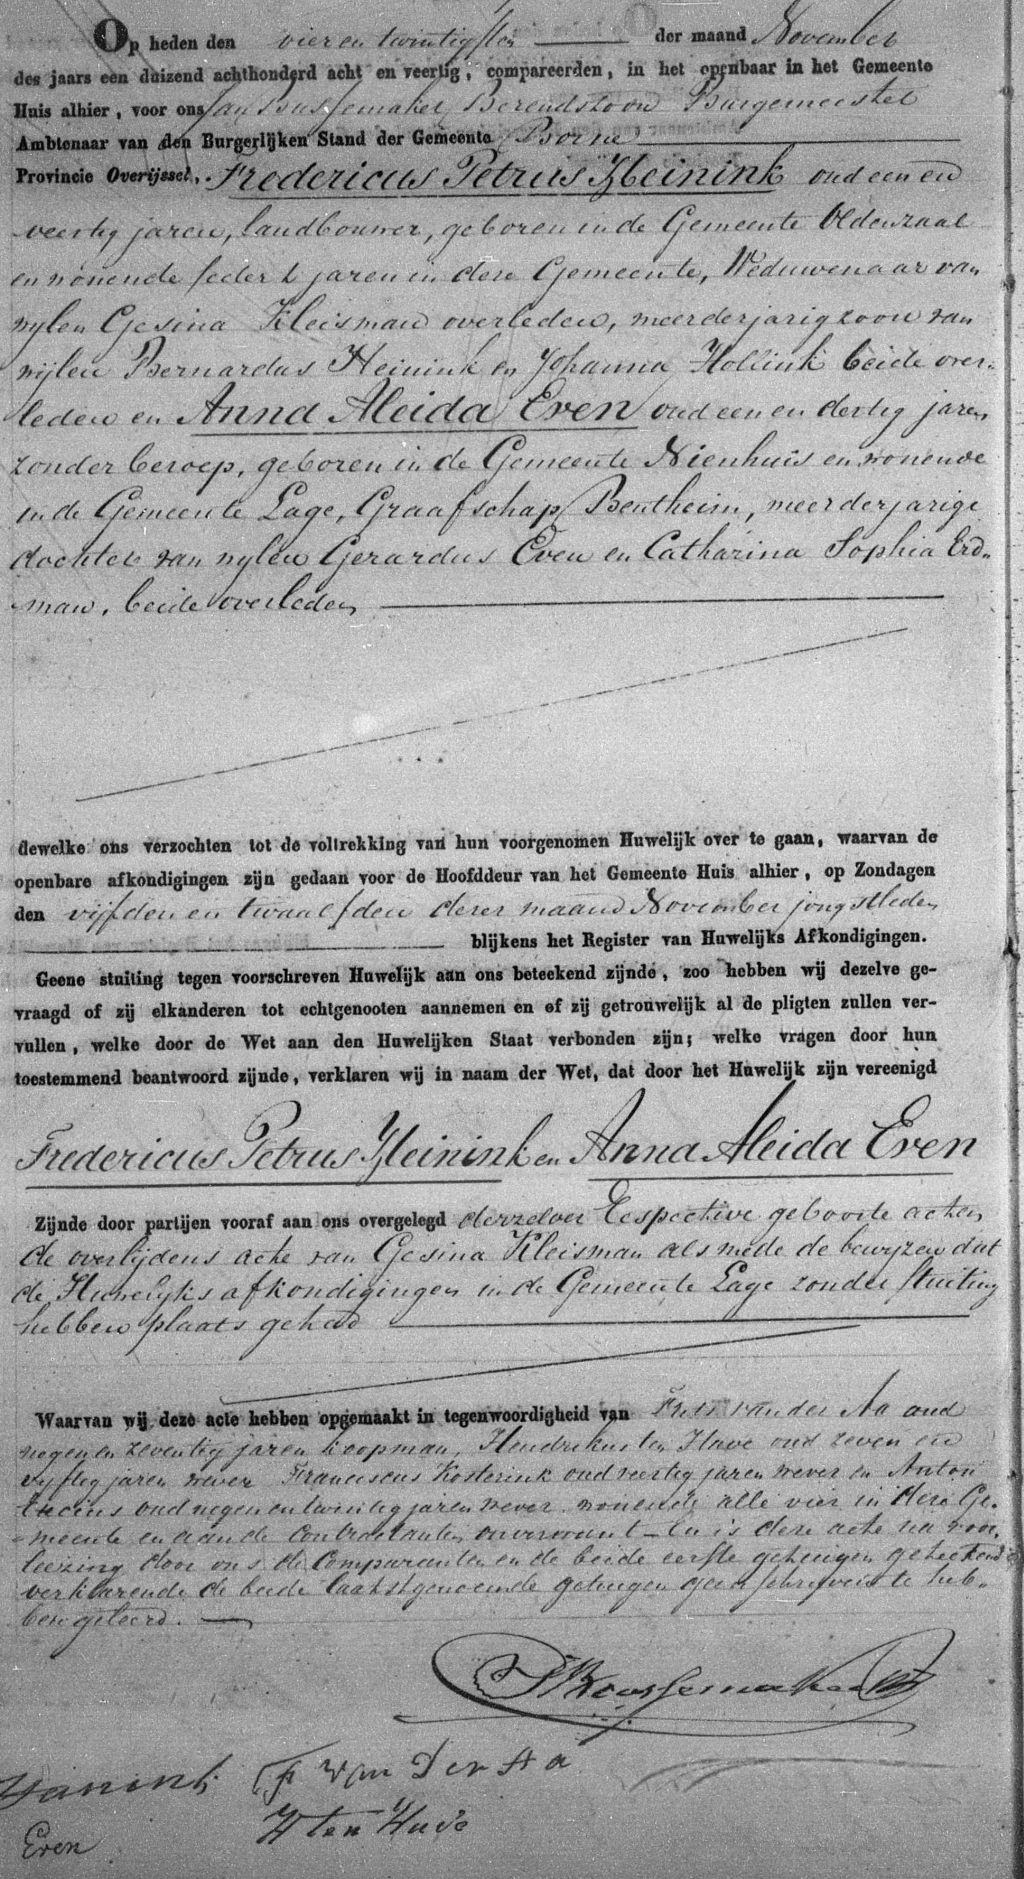 Op heden den vier en twintigsten der maand November
des jaars een duizend achthonderd acht en veertig, compareerden, in het openbaar in het Gemeente
Huis alhier, voor ons Jan Bussemaker Berendszoon Burgemeester
Ambtenaar van den Burgerlijken Stand der Gemeente Borne
Provincie Overijssel, Fredericus Petrus Heinink oud een en
veertig jaren, landbouwer, geboren in de Gemeente Oldenzaal
en wonende seder t jaren in deze Gemeente, Weduwenaar van
wylen Gesina Kleisman overleden, meerderjarig zoon van
wijlen Bernardus Heinink en Johanna Hollink beide over-
leden en Anna Aleida Even oud een en dertig jaren
zonder beroep, geboren in de Gemeente Nienhuis en wonende
in de Gemeente Lage, Graafschap Bentheim, meerderjarige
dochter van wylen Gerardus Even en Catharina Sophia Erd-
man, beide overleden
dewelke ons verzochten tot de voltrekking van hun voorgenomen Huwelijk over te gaan, waarvan de
openbare afkondigingen zijn gedaan voor de Hoofddeur van het Gemeente Huis alhier, op Zondagen
den vijfden en twaalfden dezer maand November jongstleden
blijkens het Register van Huwelijks Afkondigingen.
Geene stuiting tegen voorschreven Huwelijk aan ons beteekend zijnde, zoo hebben wij dezelve ge-
vraagd of zij elkanderen tot echtgenooten aannemen en of zij getrouwelijk al de pligten zullen ver-
vullen, welke door de Wet aan den Huwelijken Staat verbonden zijn; welke vragen door hun
toestemmend beantwoord zijnde, verklaren wij in naam der Wet, dat door het Huwelijk zijn vereenigd
Fredericus Petrus Heinink en Anna Aleida Even
Zijnde door partijen vooraf aan ons overgelegd derzelver Respective geboorte acten,
de overlijdens acte van Gesina Kleisman als mede de bewyzen dat
de Huwelyks afkondigingen in de Gemeente Lage zonder stuiting
hebben plaats gehad
Waarvan wij deze acte hebben opgemaakt in tegenwoordigheid van Frets van der Aa oud
negen en zeventig jaren koopman, Hendrikus ten Have oud zeven en
vyftig jaren wever Franciscus Kosterink oud veertig jaren wever en Anton
oud negen en twintig jaren wever wonende alle vier in deze Ge-
meente en aan de Contractanten onverwant - En is deze acte na voor-
leezing door ons de Comparanten en de beide eerste getuigen geteekend
verklarende de beide laatstgenoemde getuigen geen schryven te heb-
ben geleerd.
J Bussemaker
F van Der Aa
H ten Have
Even